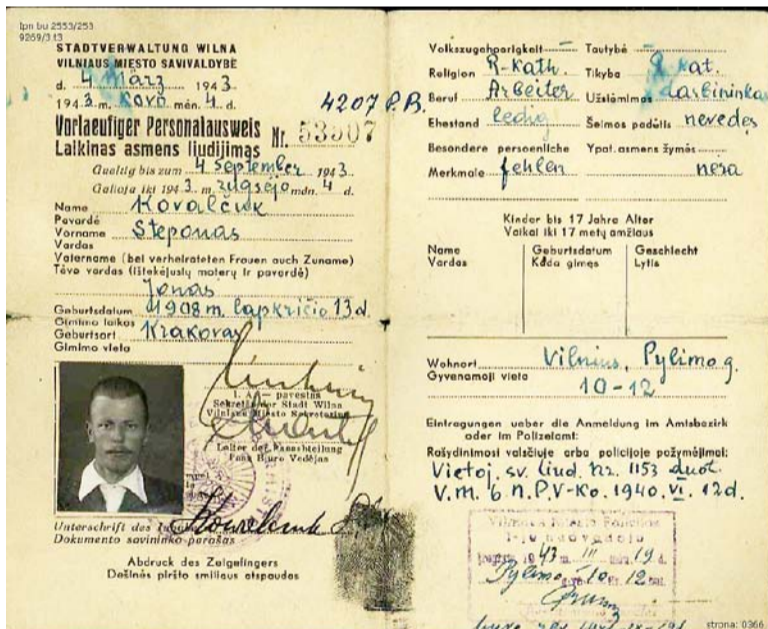 Ipn bu 2553/253
9269/3.t3
STADTVERWALTUNG WILNA
VILNIAUS MIESTO SAVIVALDYBĖ
d. 4 März 1943
1943 m. Kovo mėn. 4 d.
4207 P.B.
Vorlaeufiger Personalausweis
Laikinas asmens liudijimas
Nr. 53907
Gueltig bis zum 4 September 1943
Galioja iki 1943 m. rugsėjo mėn. 4 d.
Name Kovalčiuk
Pavardė
Vorname Steponas
Vardas
Vatername (bei verheirateten Frauen auch Zuname)
Tėvo vardas (ištekėjusių moterų ir pavardė)
Jonas
Geburtsdatum 1908 m. lapkričio 13 d.
Gimimo laikas
Geburtsort Krakovas
Gimimo vieta
Sekretär der Stadt Wilna
Vilniaus Miesto Sekretorius
Leiter der Passabteilung
Pasų Biuro Vedėjas
Unterschrift des
Dokumento savininko parašas
Abdruck des Zeigefingers
Dešinės piršto smiliaus atspaudas
Volkszugehoerigkeit — Tautybė —
Religion R-Kath. Tikyba R. kat.
Beruf Arbeiter Užsiėmimas darbininkas
Ehestand ledig Šeimos padėtis nevedęs
Besondere persoenliche Ypat. asmens žymės
Merkmale fehlen nėra
Kinder bis 17 Jahre Alter
Vaikai iki 17 metų amžiaus
Name Geburtsdatum Geschlecht
Vardas Kada gimęs Lytis
Wohnort Vilnius, Pylimo g.
Gyvenamoji vieta 10-12
Eintragungen ueber die Anmeldung im Amtsbezirk
oder im Polizeiamt:
Įrašydinimosi valsčiuje arba policijoje pažymėjimai:
Vietoj. sv. liud. nr. 1153 duot.
V.m. b. n. P.V-Ko. 1940. VI. 12d.
Vilniaus Miesto Policijos
1943 m. III mėn. 19 d.
Pylimo 10 12
strona: 0366